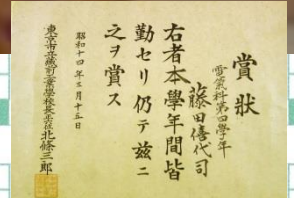 賞狀
電氣科第四學年
藤田僖代司
右者本學年間皆
勤セリ仍テ茲ニ
之ヲ賞ス
昭和十四年三月十五日
東京市立蔵前工業學校長正六位北條三郎